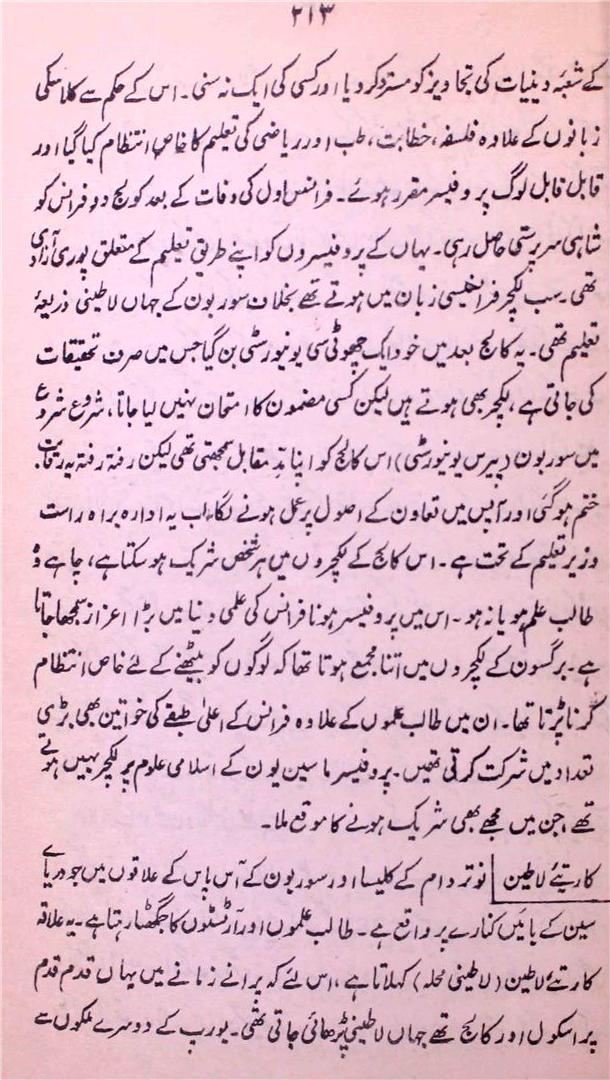 ۲۱۳
کے شعبۂ دینیات کی تجاویز کو مسترد کر دیا اور کسی کی ایک نہ سنی۔ اس کے حکم سے کلاسکی
زبانوں کے علاوہ فلسفہ، خطابت، طب اور ریاضی کی تعلیم کا خاص انتظام کیا گیا اور
قابل قابل لوگ پروفیسر مقرر ہوئے۔ فرانسس اول کی وفات کے بعد کولج دو فرانس کو
شاہی سرپرستی حاصل رہی۔ یہاں کے پروفیسروں کو اپنے طریق تعلیم کے متعلق پوری آزادی
تھی۔ سب لکچر فرانسیسی زبان میں ہوتے تھے بخلاف سوربون کے جہاں لاطینی ذریعۂ
تعلیم تھی۔ یہ کالج بعد میں خود ایک چھوٹی سی یونیورسٹی بن گیا جس میں صرف تحقیقات
کی جاتی ہے، لکچر بھی ہوتے ہیں لیکن کسی مضمون کا امتحان نہیں لیا جاتا، شروع شروع
میں سوربون (پیرس یونیورسٹی) اس کالج کو اپنا مدِّ مقابل سمجھتی تھی لیکن رفتہ رفتہ یہ رقابت
ختم ہو گئی اور آپس میں تعاون کے اصول پر عمل ہونے لگا، اب یہ ادارہ براہ راست
وزیر تعلیم کے تحت ہے۔ اس کالج کے لکچروں میں ہر شخص شریک ہو سکتا ہے، چاہے وہ
طالب علم ہو یا نہ ہو۔ اس میں پروفیسر ہونا فرانس کی علمی دنیا میں بڑا اعزاز سمجھا جاتا
ہے۔ برگسون کے لکچروں میں اتنا مجمع ہوتا تھا کہ لوگوں کو بیٹھنے کے لئے خاص انتظام
کرنا پڑتا تھا۔ ان میں طالب علموں کے علاوہ فرانس کے اعلیٰ طبقے کی خواتین بھی بڑی
تعداد میں شرکت کرتی تھیں۔ پروفیسر ماسین یون کے اسلامی علوم پر لکچر یہیں ہوتے
تھے، جن میں مجھے بھی شریک ہونے کا موقع ملا۔
کارتئے لاطین نوتر دام کے کلیسا اور سوربون کے آس پاس کے علاقوں میں جو دریائے
سین کے بائیں کنارے پر واقع ہے۔ طالب علموں اور آرٹسٹوں کا جمگھٹا رہتا ہے۔ یہ علاقہ
کارتئے لاطین (لاطینی محلہ) کہلاتا ہے، اس لئے کہ پرانے زمانے میں یہاں قدم قدم
پر اسکول اور کالج تھے جہاں لاطینی پڑھائی جاتی تھی۔ یورپ کے دوسرے ملکوں سے